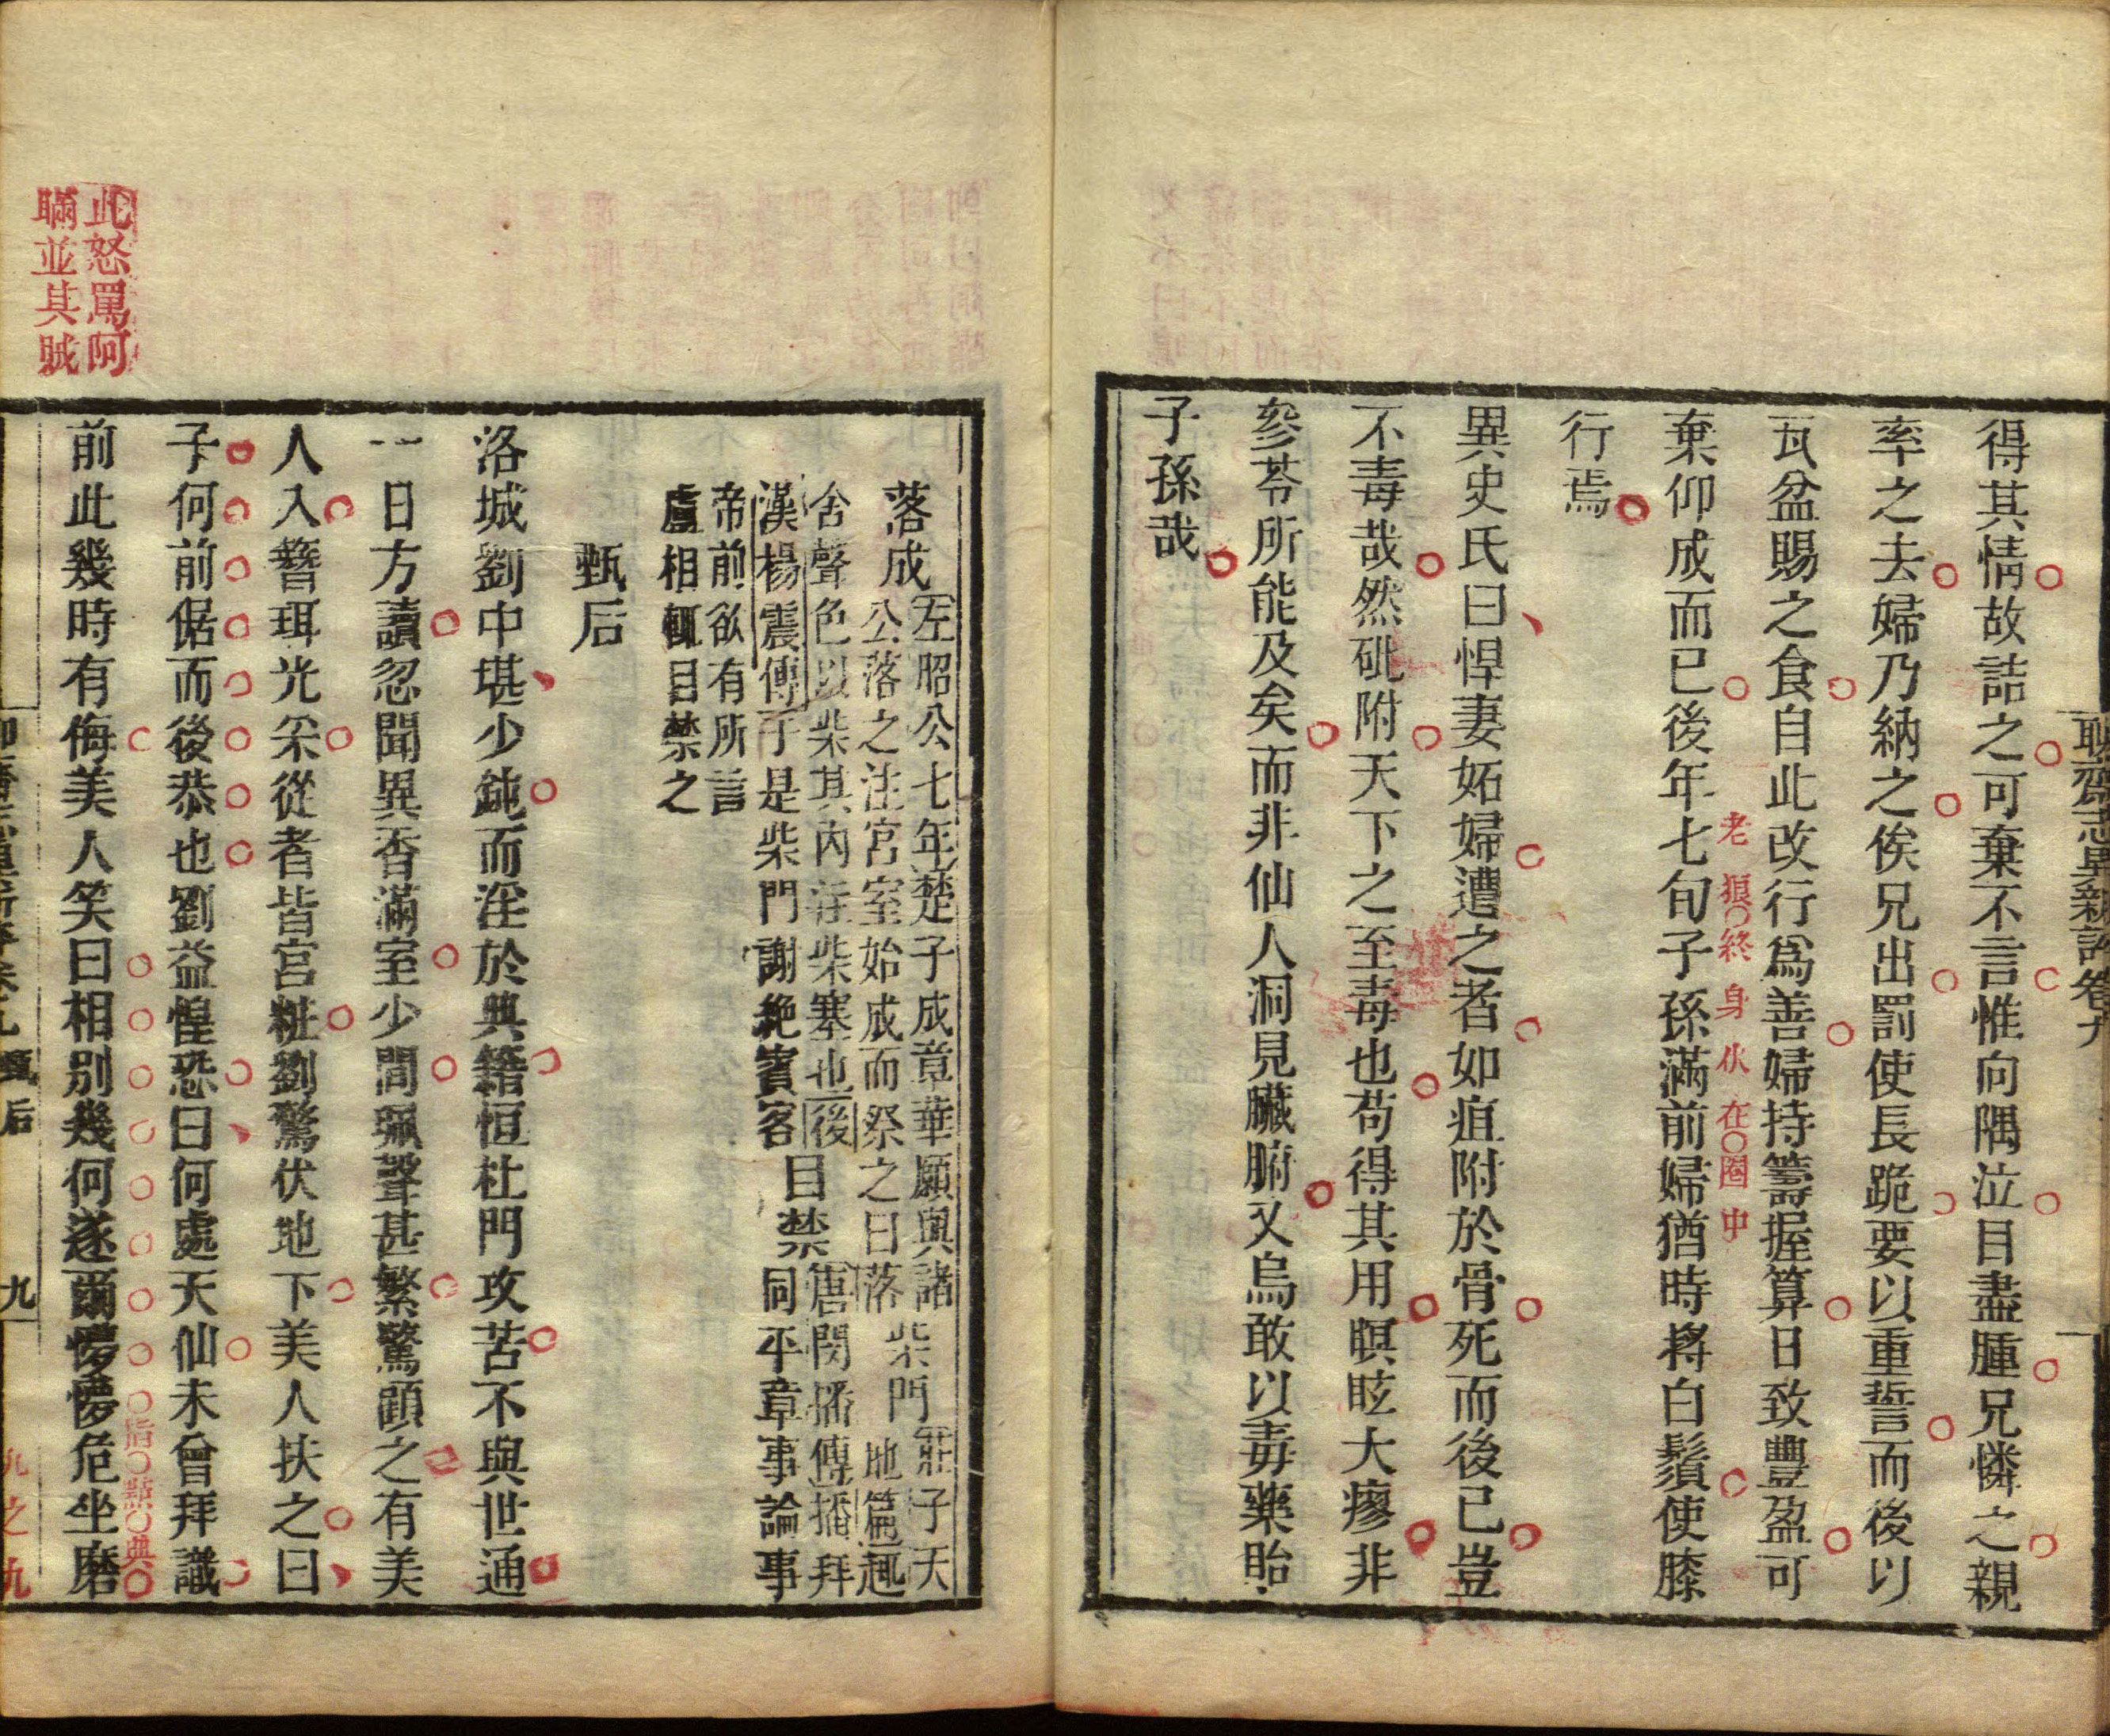 聊齋志異新評卷九
得其情故詰之可棄不言惟向隅泣目盡腫兄憐之親
率之去婦乃納之俟兄出罰使長跪要以重誓而後以
瓦盆賜之食自此改行爲善婦持籌握算日致豐盈可
棄仰成而已後年七旬子孫滿前婦猶時捋白鬚使膝
老狼終身伏在圈中
行焉
異史氏曰悍妻妬婦遭之者如疽附於骨死而後已豈
不毒哉然砒附天下之至毒也苟得其用瞑眩大瘳非
參苓所能及矣而非仙人洞見臟腑又烏敢以毒藥貽
子孫哉
落成左昭公七年楚子成章華願與諸
公落之注宮室始成而祭之曰落
柴門莊子天
地篇趣
舍聲色以柴其內注柴塞也後
漢楊震傳于是柴門謝絶賓客
目禁唐閔播傳播拜
同平章事論事
帝前欲有所言
盧相輒目禁之
甄后
洛城劉中堪少鈍而淫於典籍恒杜門攻苦不與世通
一日方讀忽聞異香滿室少間珮聲甚繁驚顧之有美
人入簪珥光采從者皆宮粧劉驚伏地下美人扶之曰
子何前倨而後恭也劉益惶恐曰何處天仙未曾拜識
前此幾時有侮美人笑曰相別幾何遂爾懵懵危坐磨
指點典
此怒罵阿
瞞並其賊
甄后
九
九之九